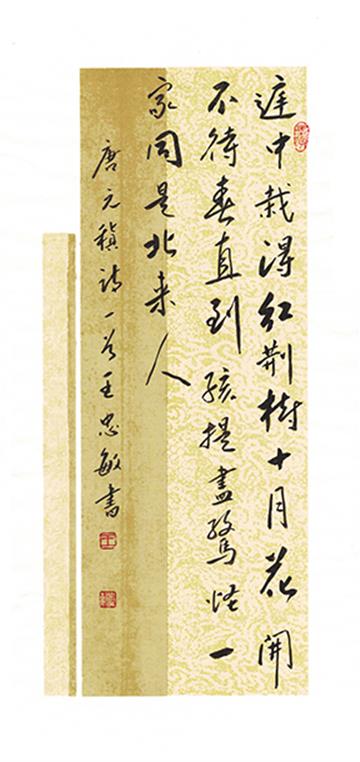 庭中栽得红荆樹十月花開
不待春直到孩提盡驚怪一
家同是北来人
唐元稹诗一首王忠敏書